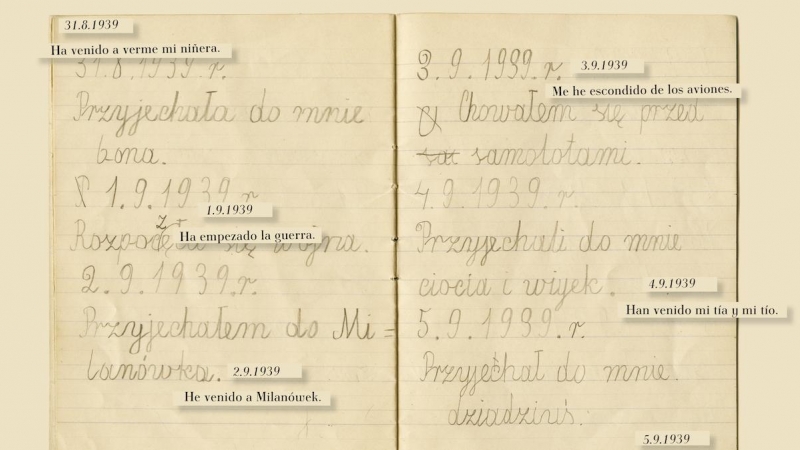 31.8.1939
Ha venido a verme mi niñera.
31.8.1939.r.
Przyjechała do mnie
bona.
1.9.1939.r
1.9.1939
Ha empezado la guerra.
się wojna.
2.9.1939.r.
Przyjechałem do Mi=
lanówka.
2.9.1939
He venido a Milanówek.
3.9.1939.r.
3.9.1939
Me he escondido de los aviones.
Chowałem się przed
samolotami.
4.9.1939.r.
Przyjechali do mnie
ciocia i wujek.
4.9.1939
Han venido mi tía y mi tío.
5.9.1939.r.
Przyjechał do mnie
dziadziuś.
5.9.1939